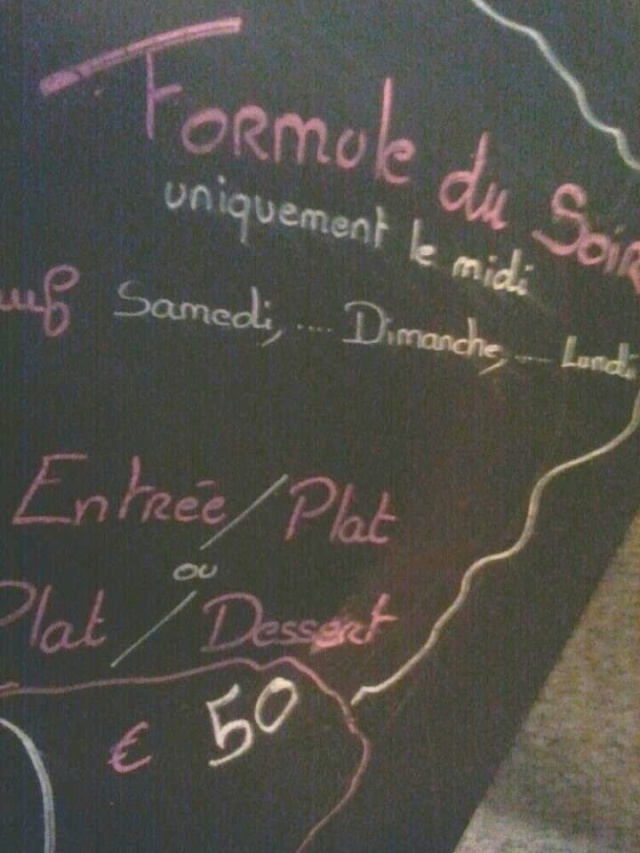 Formule du Soir
uniquement le midi
Samedi, .... Dimanche, .... Lundi
Entrée / Plat
ou
Plat / Dessert
€ 50